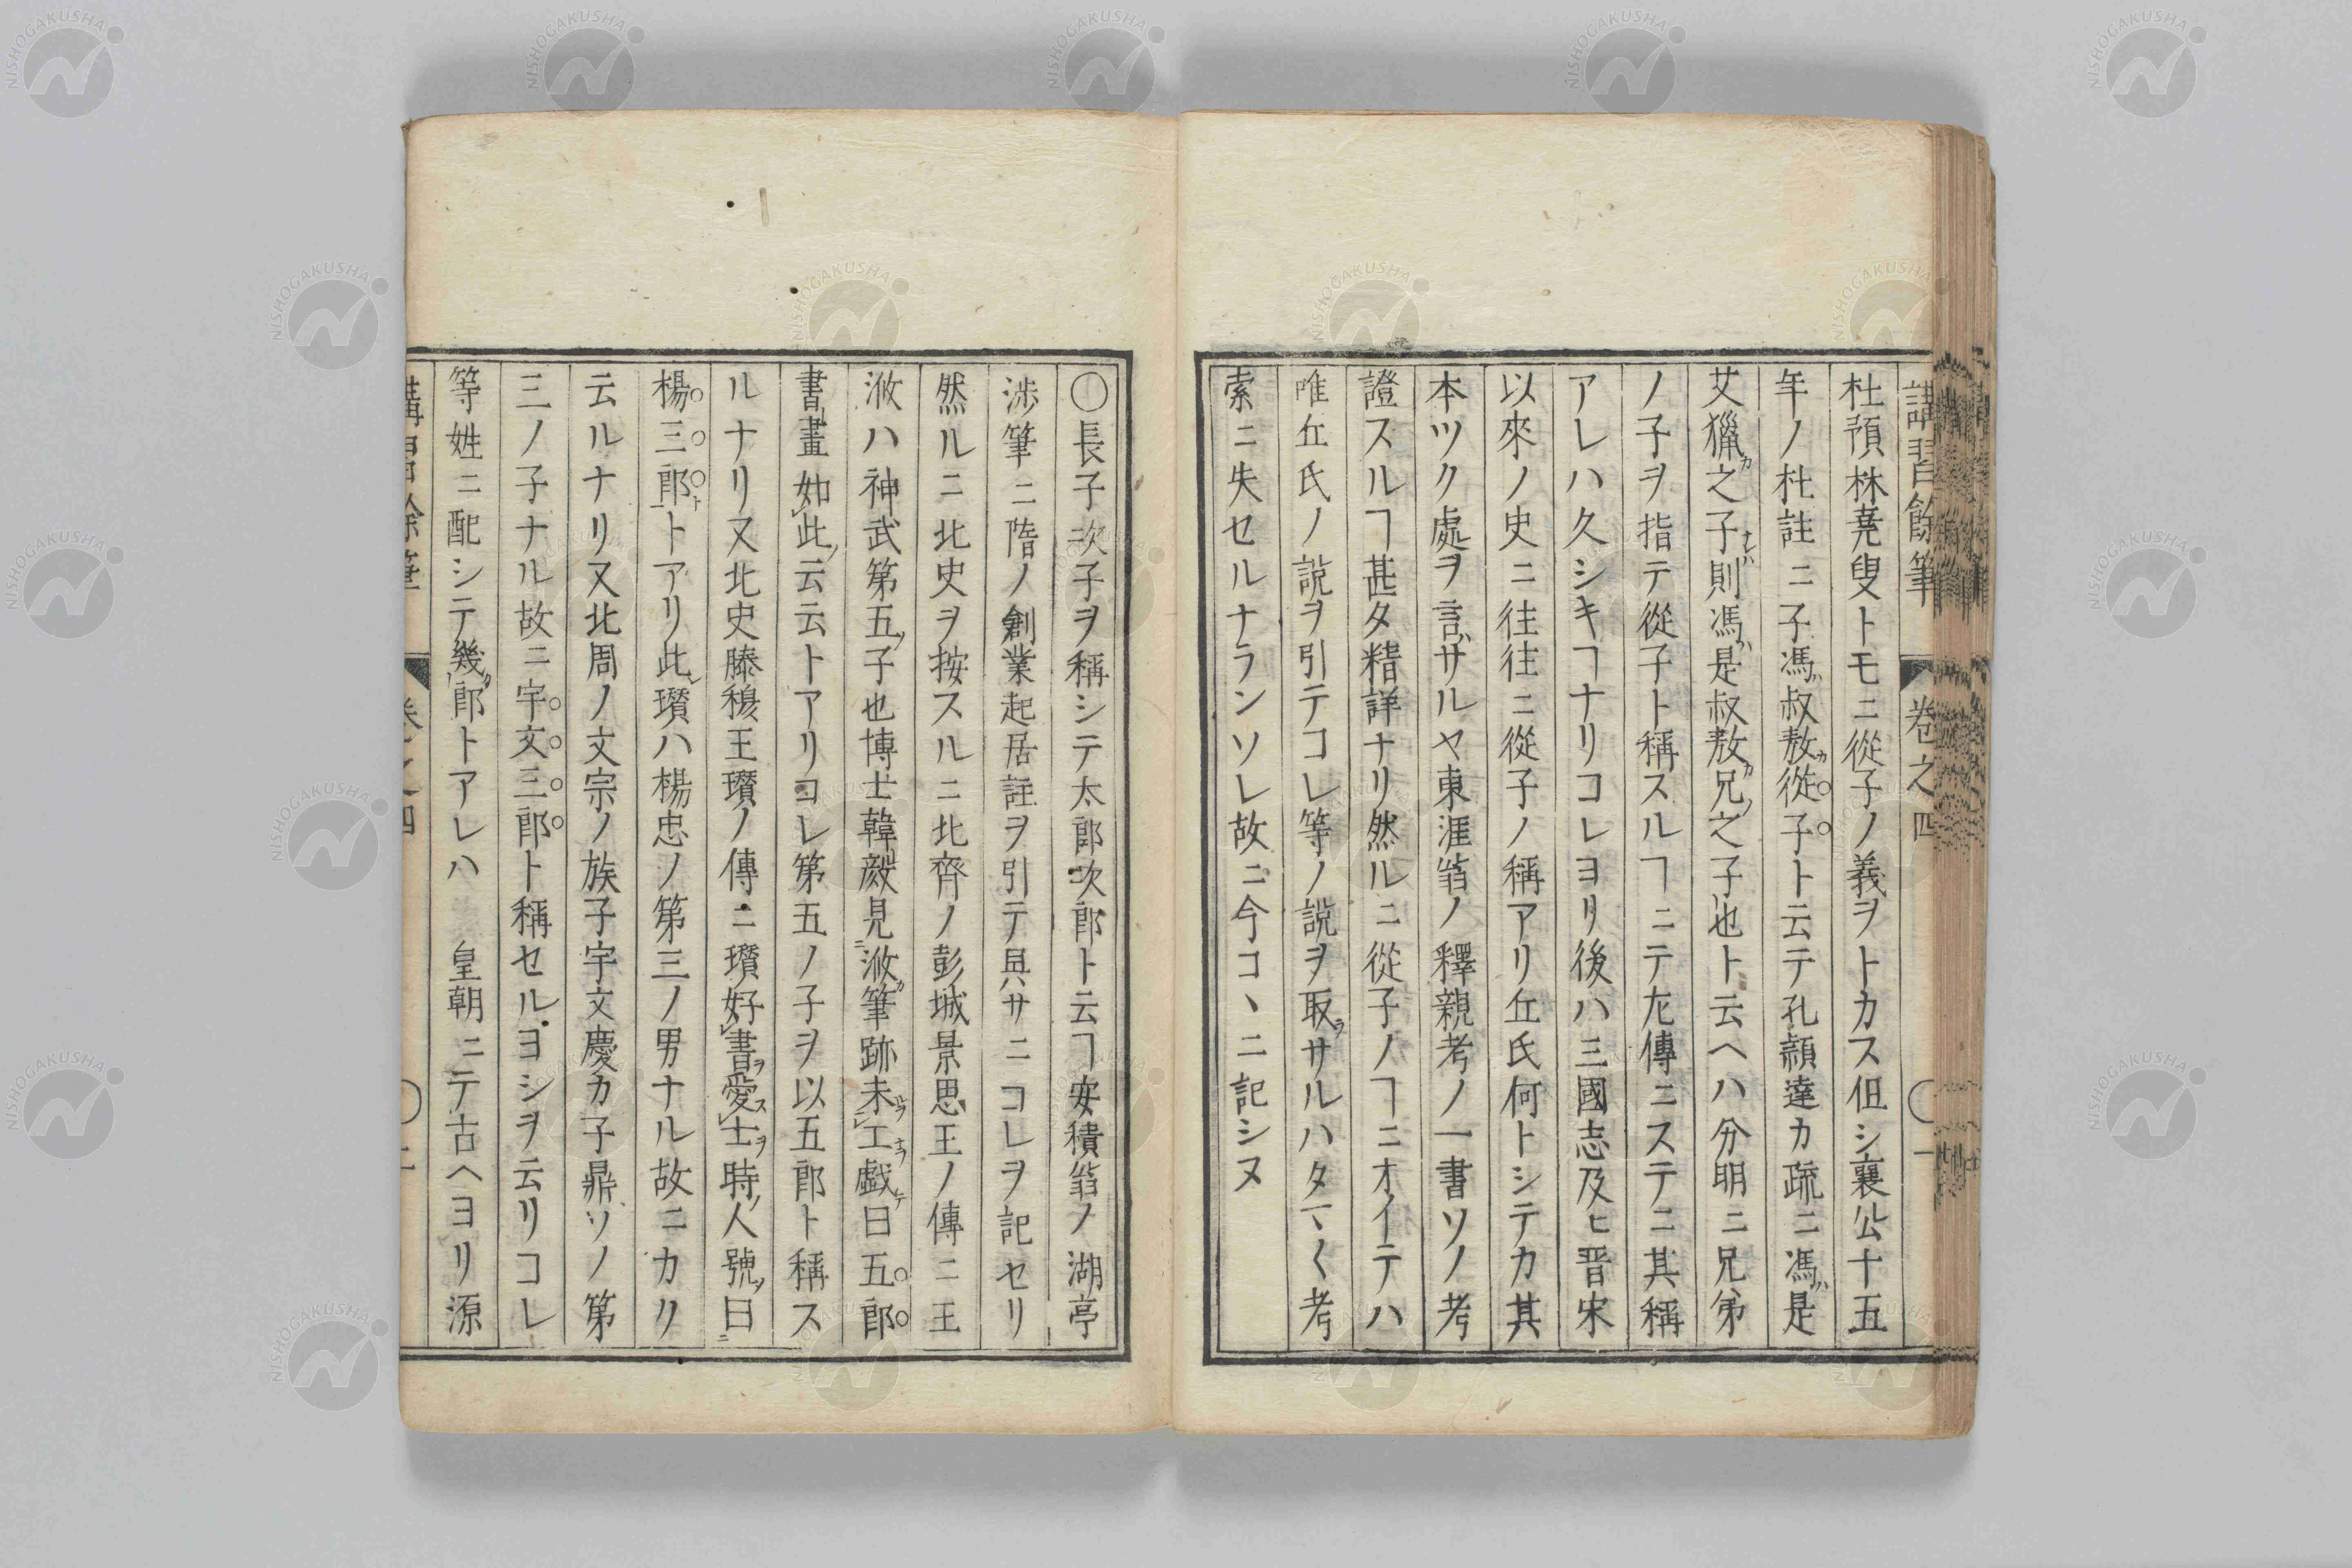 講習餘筆　卷之四　〇一
杜預林堯叟トモニ從子ノ義ヲトカス但シ襄公十五
年ノ杜註ニ子馮ハ叔敖カ從子ト云テ孔穎達カ疏ニ馮ハ是
艾獵カ之子ナレバ則馮ハ是叔敖カ兄ノ之子也ト云ヘハ分明ニ兄弟
ノ子ヲ指テ從子ト稱スルヿニテ左傳ニステニ其稱
アレハ久シキヿナリコレヨリ後ハ三國志及ヒ晋宋
以來ノ史ニ往往ニ從子ノ稱アリ丘氏何トシテカ其
本ツク處ヲ言ハザルヤ東涯翁ノ釋親考ノ一書ソノ考
證スルヿ甚タ精詳ナリ然ルニ從子ノヿニオイテハ
唯丘氏ノ説ヲ引テコレ等ノ説ヲ取ラサルハタマ〱考
索ニ失セルナランソレ故ニ今コヽニ記シヌ
〇長子次子ヲ稱シテ太郎次郎ト云ヿ安積翁ノ湖亭
渉筆ニ隋ノ創業起居註ヲ引テ具サニコレヲ記セリ
然ルニ北史ヲ按スルニ北齊ノ彭城景思王ノ傳ニ王
浟ハ神武第五ノ子也博士韓毅見浟カ筆跡未工戯テ曰五郎
書畫如此ノ云云トアリコレ第五ノ子ヲ以五郎ト稱ス
ルナリ又北史滕穆王瓚ノ傳ニ瓚好書ヲ愛ス士ヲ時ノ人號曰
楊三郎トアリ此瓚ハ楊忠ノ第三ノ男ナル故ニカク
云ルナリ又北周ノ文宗ノ族子宇文慶カ子鼎ソノ第
三ノ子ナル故ニ宇文三郎ト稱セルヨシヲ云リコレ
等姓ニ配シテ幾郎トアレハ　皇朝ニテ古ヘヨリ源
講習餘筆　卷之四　〇二
NISHOGAKUSHA